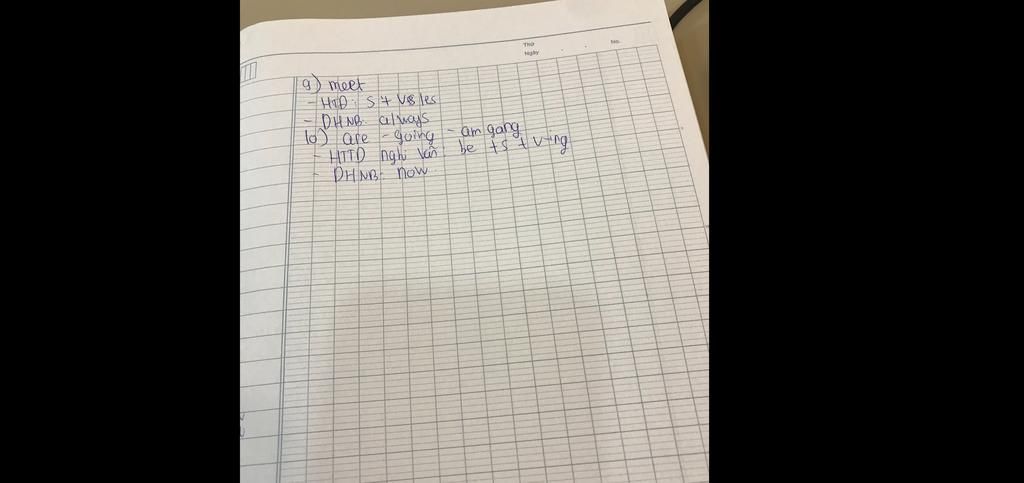 Thứ
Ngày . . No.
9) meet
- HTĐ: S + Vs/es
- DHNB: always
10) are - going - am gang
- HTTD nghi vấn: be + S + V-ing
- DHNB: now